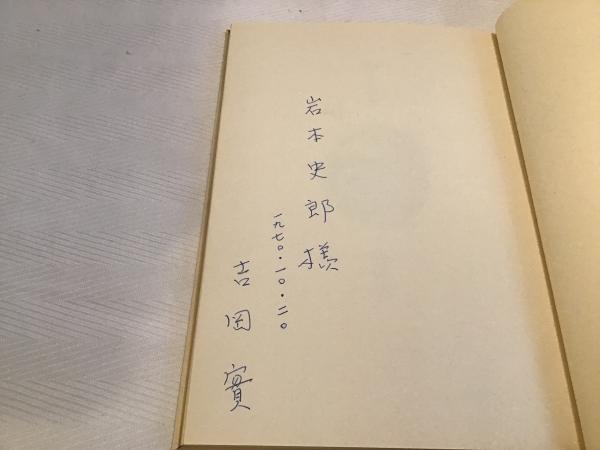 岩本史郎様
一九七〇・一〇・二〇
吉岡實